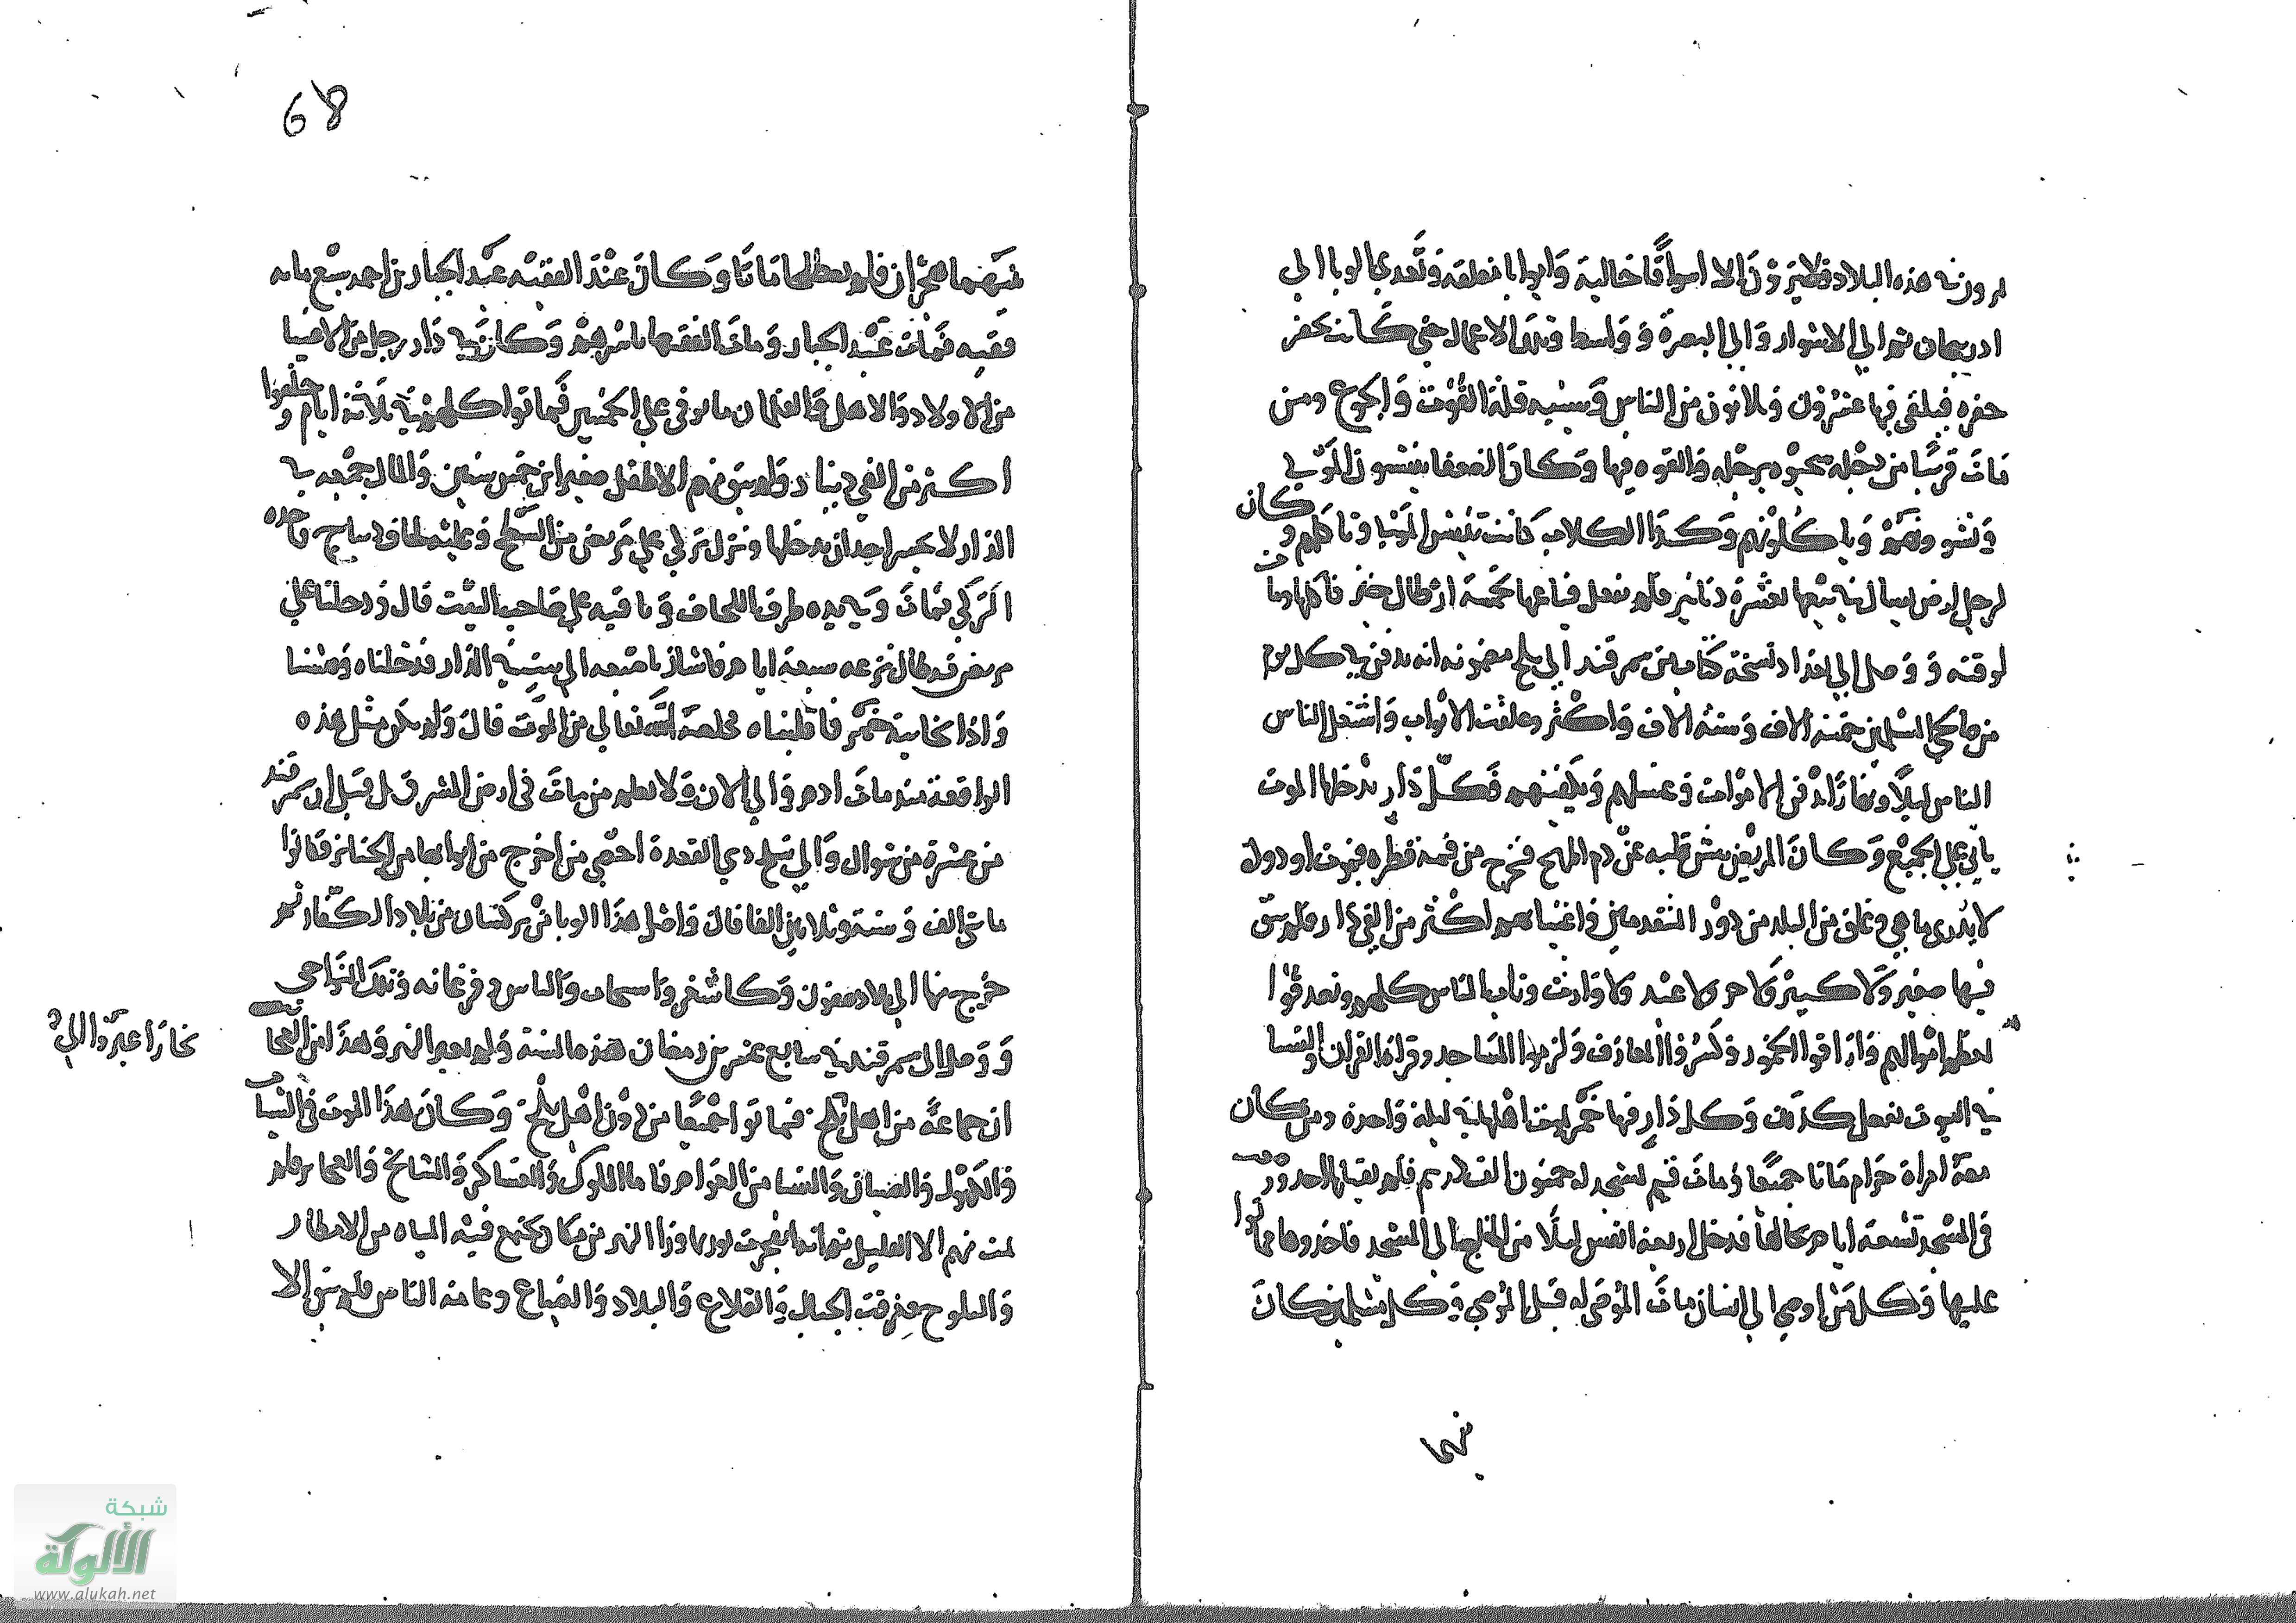 يدورون في هذه البلاد فلا يرون الا اسواقا خالية وابوابا مغلقة وتعدى الوبا الى
ادربيجان ثم الى الاهواز والى البصرة وواسط وتلك الاعمال حتى كانت تحفر
حفره فيلقى فيها عشرون وثلاثون من الناس وسببه قلة القوت والجوع ومن
مات قريبا من دجله سحبوه برجله والقوه فيها وكان الضعفا ينبشون الموتى
ويشوونهم وياكلونهم وكذا الكلاب كانت تنبش الموتى وتاكلهم وكان
لرجل ارض يسال في بيعها بعشرة دنانير فلم يفعل فباعها بخمسة ارطال خبز فاكلها ومات من
لوقته ووصل الى بغداد نسخة كتاب من سمرقند الى بلخ مضمونه انه يدفن في كل يوم
من صالحي المسلمين خمسة الاف وستة الاف واكثر وغلقت الابواب واشتغل الناس
الناس ليلا ونهارا بدفن الاموات وغسلهم وتكفينهم فكل دار يدخلها الموت
ياتي على الجميع وكان المريض ينشق قلبه عن دم المهج فيخرج من فمه قطره فيموت او دودة
لا يدرى ما هي وغلق من البلد من دور المتقدمين واغنياهم اكثر من الفي دار ولم يبق
فيها صغير ولا كبير ولا حر ولا عبد ولا وارث وتاب الناس كلهم وتصدقوا
بمعظم اموالهم واراقوا الخمور وكسروا المعازف ولزموا المساجد وقراة القران والنسا
في البيوت تفعل كذلك وكل دار فيها خمر يموت اهلها في ليلة واحدة ومن كان
معه امراة حرام ماتا جميعا ومات قيم مسجد له خمسون الف درهم فلم يقبلها احد ووضعت
في المسجد تسعة ايام بحالها فدخل اربعة انفس ليلا من الخلج الى المسجد فاخذوها فماتوا
عليها وكل من اوصى الى انسان مات الموصى له قبل الموصي وكل مسلمين كان
بينهما
68
بينهما هجران فلم يصطلحا ماتا وكان عند الفقيه عبد الجبار بن احمد سبع مايه
فقيه فمات عبد الجبار ومات الفقها باسرهم وكان في دار رجل من الاغنيا
من الاولاد والاهل والغلمان ما يوفي على الخمسين فماتوا كلهم في ثلاثة ايام وخلفوا
اكثر من الفي دينار ولم يبق منهم الا طفل صغير ابن خمس سنين والمال جميعه في
الدار لا يجسر احد ان يدخلها ونزل تركي على مريض من السطح وعليه لحاف ديباج فاخذه
التركي فمات وفي يده طرف اللحاف وباقيه على صاحب البيت قال ودخلنا على
مريض قد طال نزعه سبعة ايام فاشار باصبعه الى بيت في الدار فدخلناه وفتشنا
واذا بخابية خمر فاقلبناه فخلصه الله تعالى من الموت قال ولم يكن مثل هذه
الواقعة منذ مات ادم والى الان ولا يعلم من مات في ارض المشرق بل قيل ان سمرقند
من عشرة من شوال والى سلخ ذي القعدة احصي من اخرج من ابوابها من الجنايز فكانوا
مايتي الف وستة وثلاثين الفا قال واصل هذا الوبا من تركستان من بلاد الكفار ثم
خرج منها الى بلاد صغون وكاشغر واسبيجاب والناس وفرغانه وتلك النواحي
ووصل الى سمرقند في سابع عشرين رمضان هذه السنة ولم يعبر النهر وهذا من العجايب
بخارا عبروا الى
ان جماعة من اهل بلخ فماتوا جميعا من دون اهل بلخ وكان هذا الموت في الشباب
والكهول والصبيان والنسا من العوام فاما الملوك والعساكر والمشايخ والعجايز فلم
يمت منهم الا القليل ثم انه انفجرت بورا وراا النهر من مكان يجتمع فيه المياه من الامطار
والثلوج فغرقت الجبال والقلاع والبلاد والضياع وعامة الناس ولم يبق الا
شبكة
الألوكة
www.alukah.net